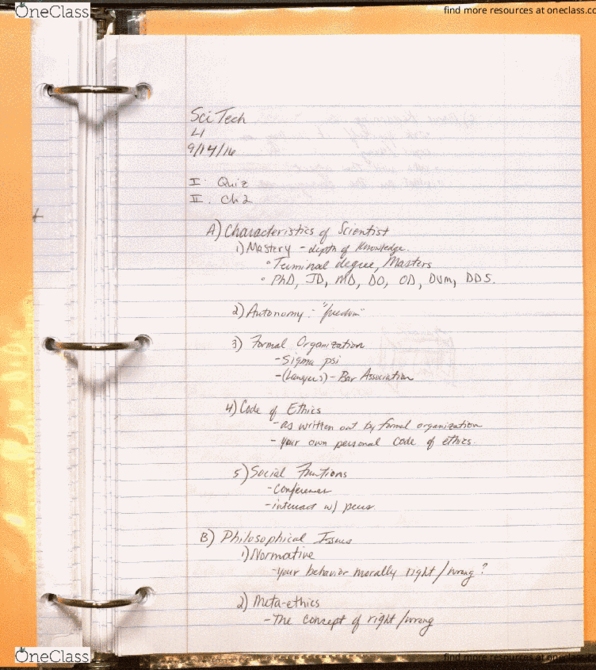 OneClass
find more resources at oneclass.com
Sci Tech
L1
9/14/16
I. Quiz
II. Ch 2
A) Characteristics of Scientist
1) Mastery - depth of knowledge.
• Terminal degree, Masters
• PhD, JD, MD, DO, OD, DVM, DDS.
2) Autonomy : "freedom"
3) Formal Organization
- Sigma psi
- (Lawyers) - Bar Association
4) Code of Ethics
- as written out by formal organization
- your own personal code of ethics.
5) Social Functions
- Conference
- interact w/ peers
B) Philosophical Issues
1) Normative
- your behavior morally right / wrong?
2) Meta-ethics
- The concept of right / wrong
OneClass
find more resources at oneclass.com